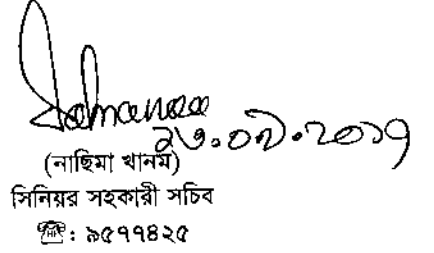 ২৩.০৭.২০১৭
(নাছিমা খানম)
সিনিয়র সহকারী সচিব
☎: ৯৫৭৭৪২৫